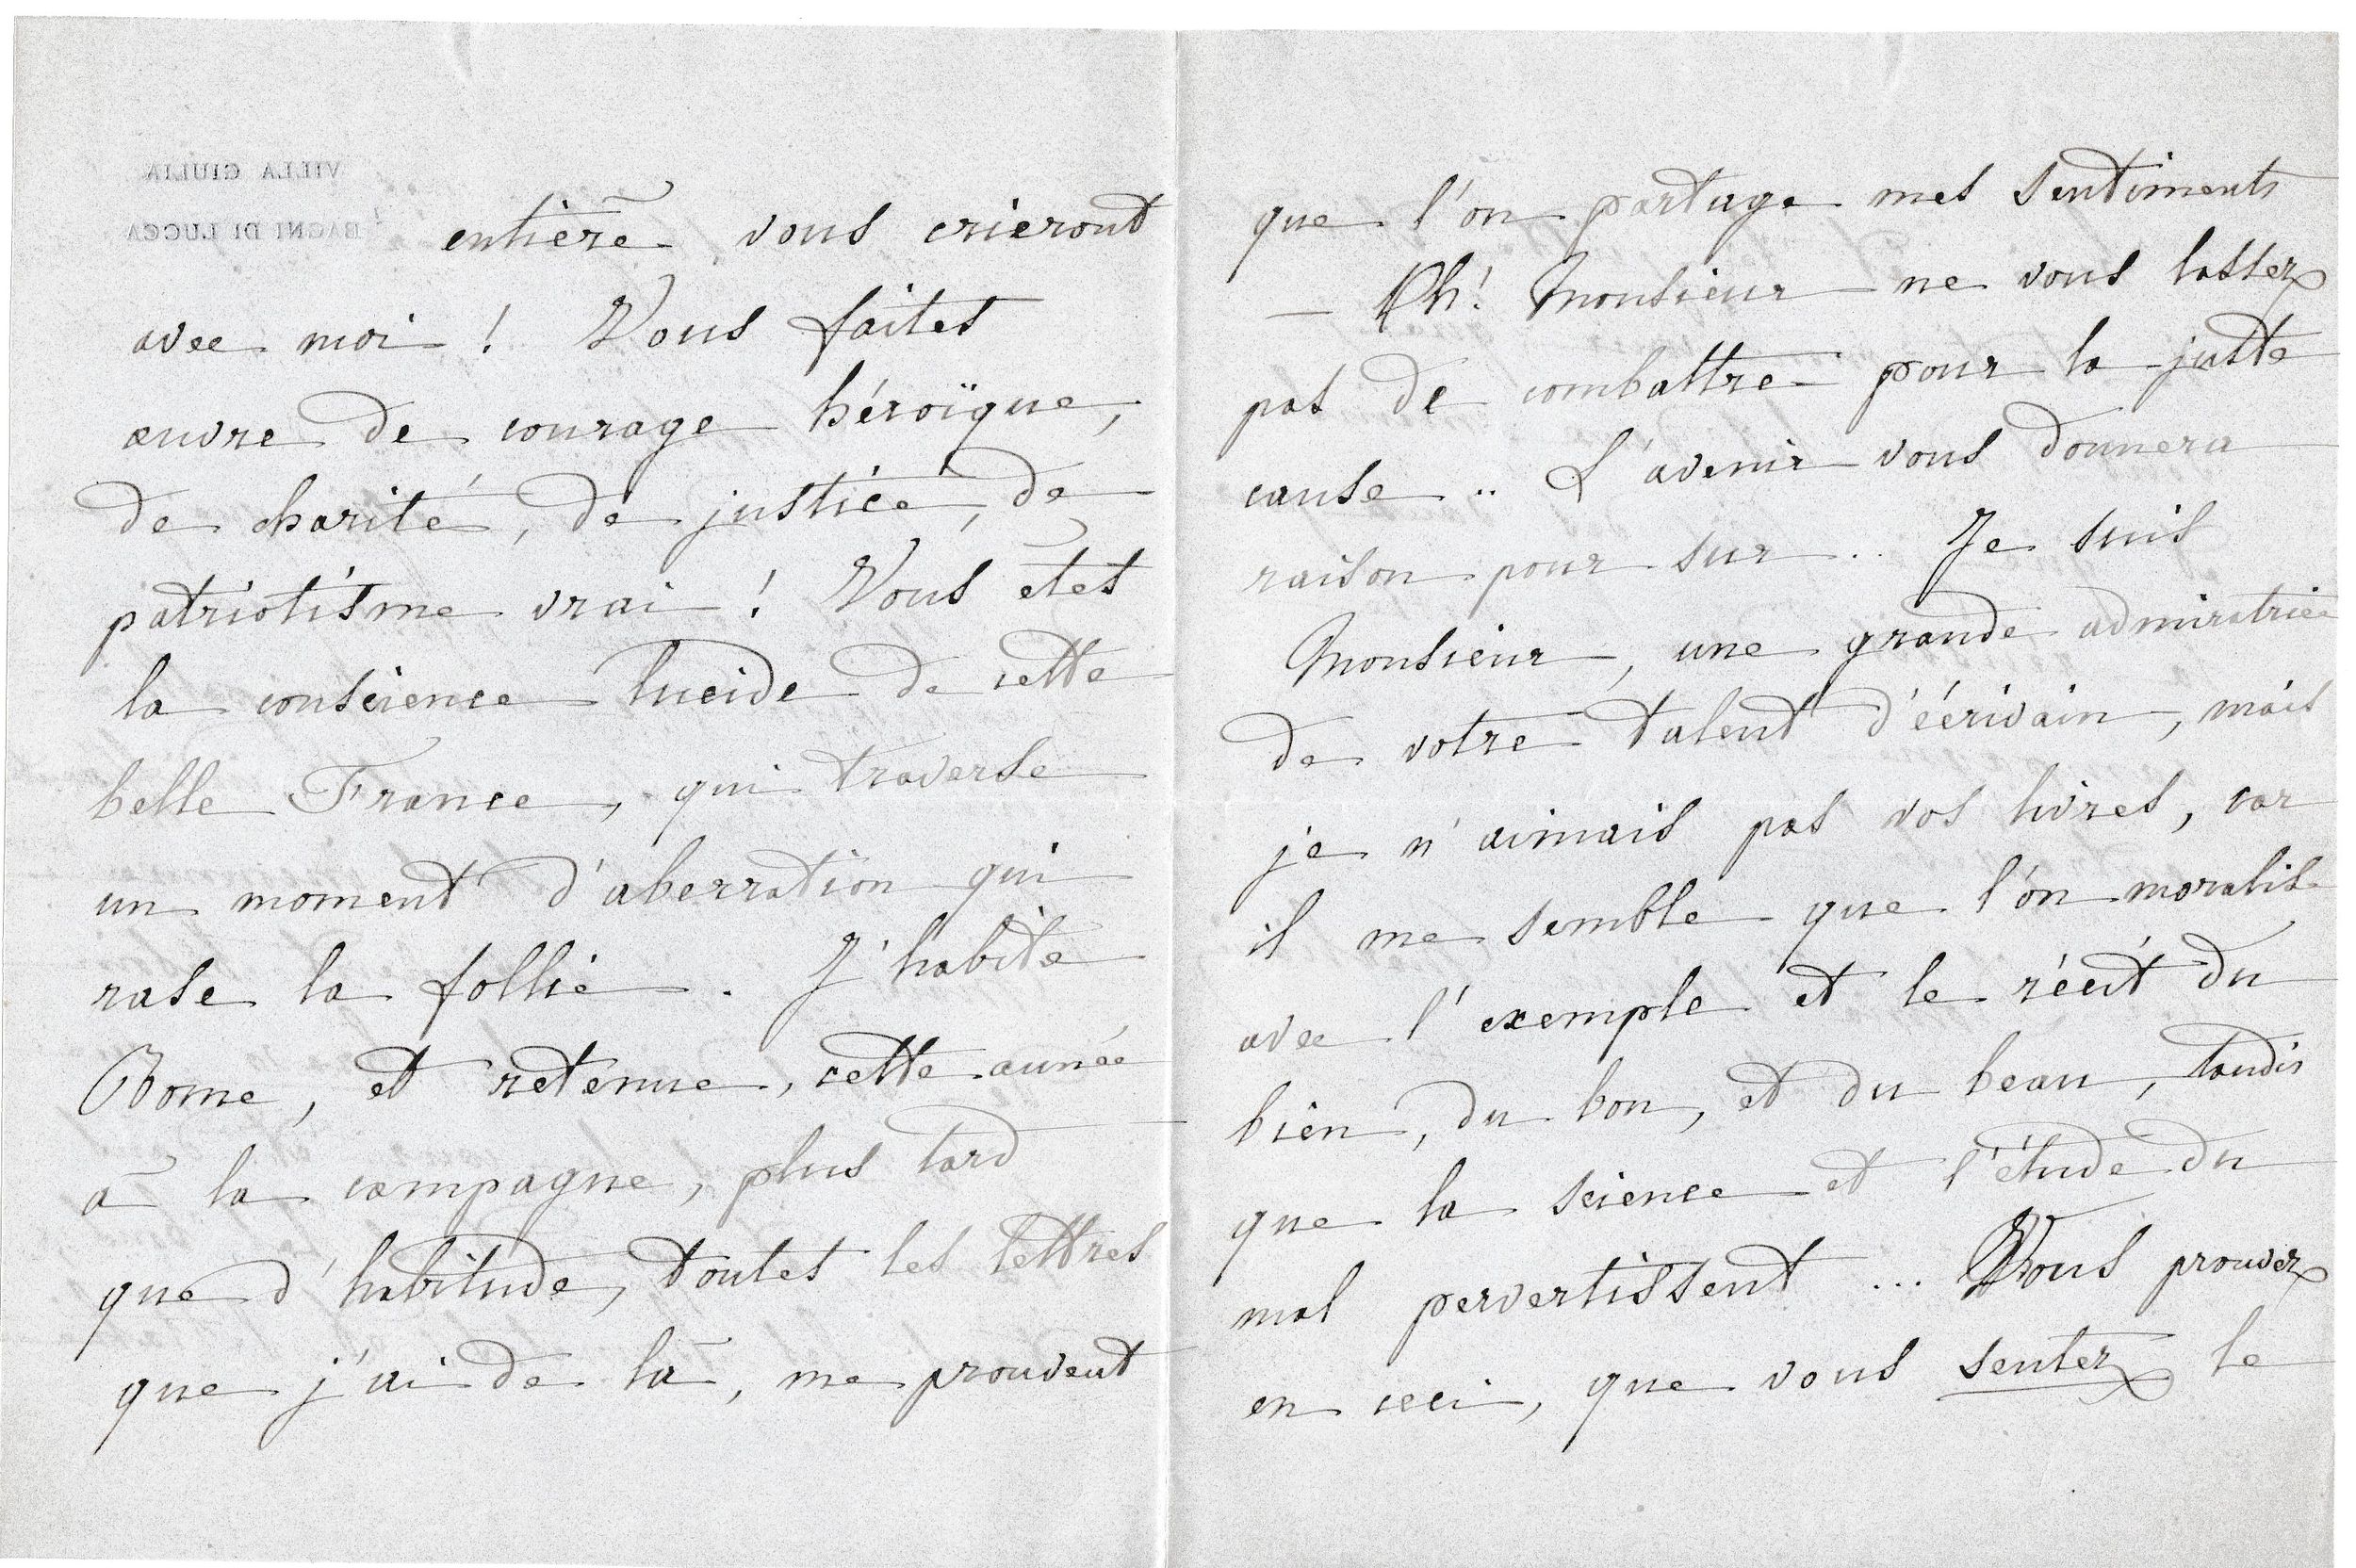 VILLA GIULIA
BAGNI DI LUCCA
entière vous crieront
avec moi ! Vous faites
œuvre de courage héroïque,
de charité, de justice, de
patriotisme vrai ! Vous êtes
la conscience lucide de cette
belle France, qui traverse
un moment d'aberration qui
rase la follie. J'habite
Rome, et retenue, cette année
à la campagne, plus tard
que d'habitude, toutes les lettres
que j'ai de là, me prouvent
que l'on partage mes sentiments
— Ah! Monsieur ne vous lassez
pas de combattre pour la juste
cause .. L'avenir vous donnera
raison pour sur .. Je suis
Monsieur, une grande admiratrice
de votre talent d'écrivain, mais
je n'aimais pas vos livres, car
il me semble que l'on moralise
avec l'exemple et le récit du
bien, du bon, et du beau, tandis
que la science et l'étude du
mal pervertissent ... Vous prouvez
en ceci, que vous sentez le